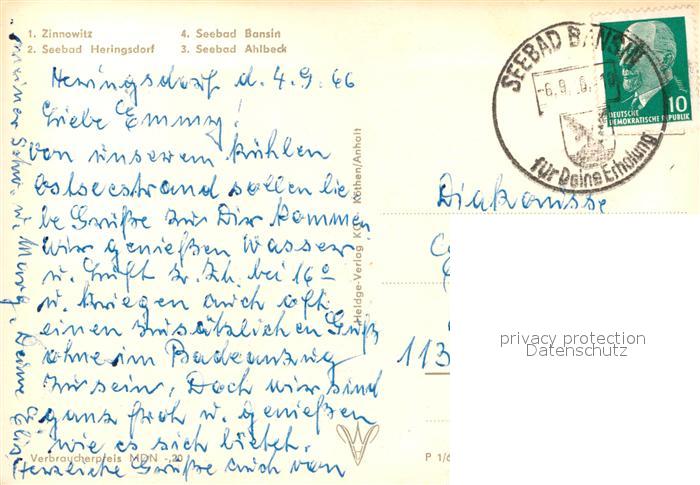 1. Zinnowitz
2. Seebad Heringsdorf
4. Seebad Bansin
3. Seebad Ahlbeck
SEEBAD BANSIN
-6.9.
für Deine Erholung
10
DEUTSCHE
DEMOKRATISCHE REPUBLIK
Heringsdorf d. 4.9.66
Liebe Emmy!
Von unserem kühlen
Ostseestrand sollen lie-
be Grüße zur Dir kommen
wir genießen Wasser
u. Luft z. Zt. bei 16°
u. kriegen auch oft
einen zusätzlichen Guß
ohne im Badeanzug
zu sein. Doch wir sind
ganz froh u. genießen
wie es sich bietet.
Herzliche Grüße auch von
meiner Schw. u. Deine
Diakonisse
113
Heldge-Verlag KG Köthen/Anhalt
Verbraucherpreis MDN -,20
P 1/6
privacy protection
Datenschutz